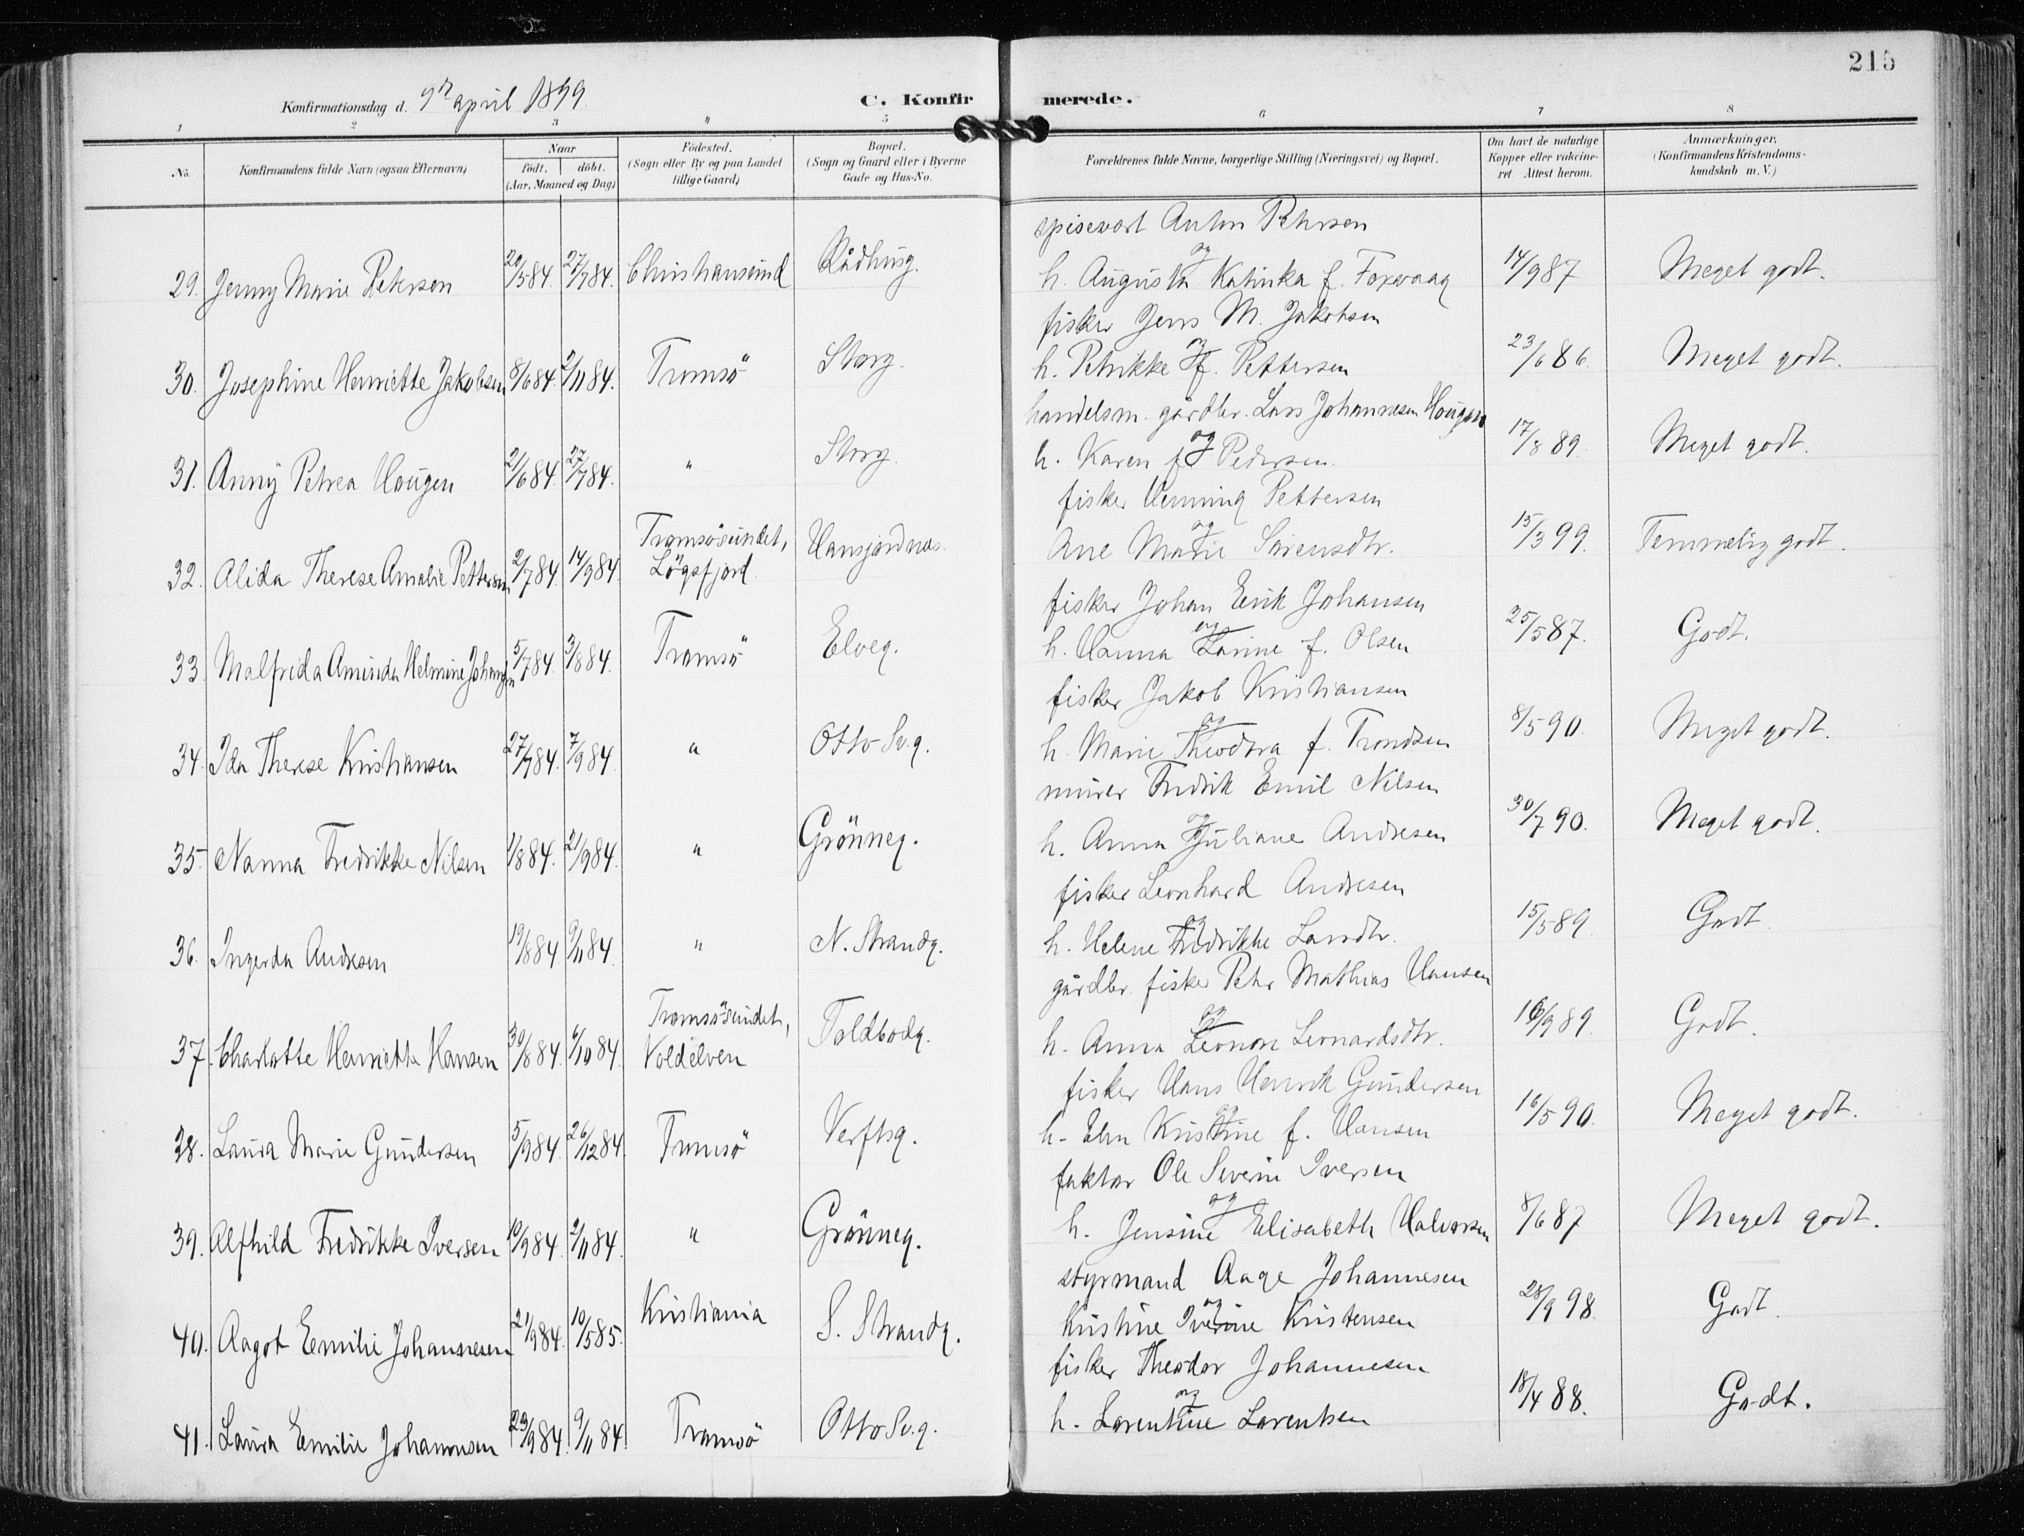 215
Konfirmationsdag d. 9de april 1899.
C. Konfirmerede.
1 2 3 4 5 6 7 8
No.
Konfirmandens fulde Navn (ogsaa Efternavn)
Naar
født. døbt.
(Aar, Maaned og Dag)
Fødested.
(Sogn eller By og paa Landet
tillige Gaard)
Bopæl.
(Sogn og Gaard eller i Byerne
Gade og Hus-No.
Forældrenes fulde Navne, borgerlige Stilling (Næringsvei) og Bopæl.
Om havt de naturlige
Kopper eller vakcine-
ret Attest herom.
Anmærkninger.
(Konfirmandens Kristendoms-
kundskab m. V.)
spisevært Anton Petersen
og
29. Jenny Marie Petersen 29/5 84. 27/7 84. Christiansund Rådhusg. h. Augusta Katinka f. Foxvaag 14/9 87 Meget godt.
fisker Jens M. Jakobsen
og
30. Josephine Henriette Jakobsen 8/6 84. 2/11 84. Tromsö Storg. h. Petrikke f. Pettersen 23/6 86. Meget godt.
handelsm. gårdbr. Lars Johannesen Hougen
og
31. Anny Petrea Hougen 21/6 84. 27/7 84. " Storg. h. Karen f. Pedersen. 17/8 89. Meget godt.
fisker Henning Pettersen
og
32. Alida Therese Amalie Pettersen 2/7 84. 14/9 84. Tromsösundet, Lögsfjord Hansjordnæs. Ane Marie Sörensdtr. 15/3 99. Temmelig godt.
fisker Johan Erik Johansen
og
33. Malfrida Aminda Helmine Johansen 5/7 84. 3/8 84. Tromsö Elveg. h. Hanna Larine f. Olsen 25/5 87. Godt.
fisker Jakob Kristiansen
og
34. Ida Therese Kristiansen 27/7 84. 7/9 84. " Otto Sv.g. h. Marie Theodora f. Trondsen 8/5 90. Meget godt.
murer Fredrik Emil Nilsen
og
35. Nanna Fredrikke Nilsen 1/8 84. 21/9 84. " Grönneg. h. Anna Juliane Andresen 30/7 90. Meget godt.
fisker Leonhard Andresen
og
36. Ingerda Andresen 19/8 84 9/11 84. " N. Strandg. h. Helene Fredrikke Larsdtr. 15/5 89. Godt
gårdbr. fisker Peter Mathias Hansen
og
37. Charlotte Henriette Hansen 30/8 84. 6/10 84. Tromsösundet, Voldelven Toldbodg. h. Anna Leonore Leonardsdtr. 16/9 89. Godt.
fisker Hans Henrik Gundersen
og
38. Laura Marie Gundersen 5/9 84. 26/12 84. Tromsö Verftsg. h. Elen Kristine f. Hansen 16/5 90. Meget godt.
faktor Ole Severin Iversen
og
39. Alfhild Fredrikke Iversen 10/9 84. 2/11 84. " Grönneg. h. Jensine Elisabeth Halvorsen 8/6 87 Meget godt.
styrmand Aage Johannesen
og
40. Aagot Emilie Johannesen 21/9 84. 10/5 85. Kristiania S. Strandg. Kristine Iverine Kristensen 28/9 98. Godt.
fisker Theodor Johannesen
og
41. Laura Emilie Johannesen 29/9 84. 9/11 84. Tromsö Otto Sv.g. h. Larentine Larentsen 18/4 88. Godt.